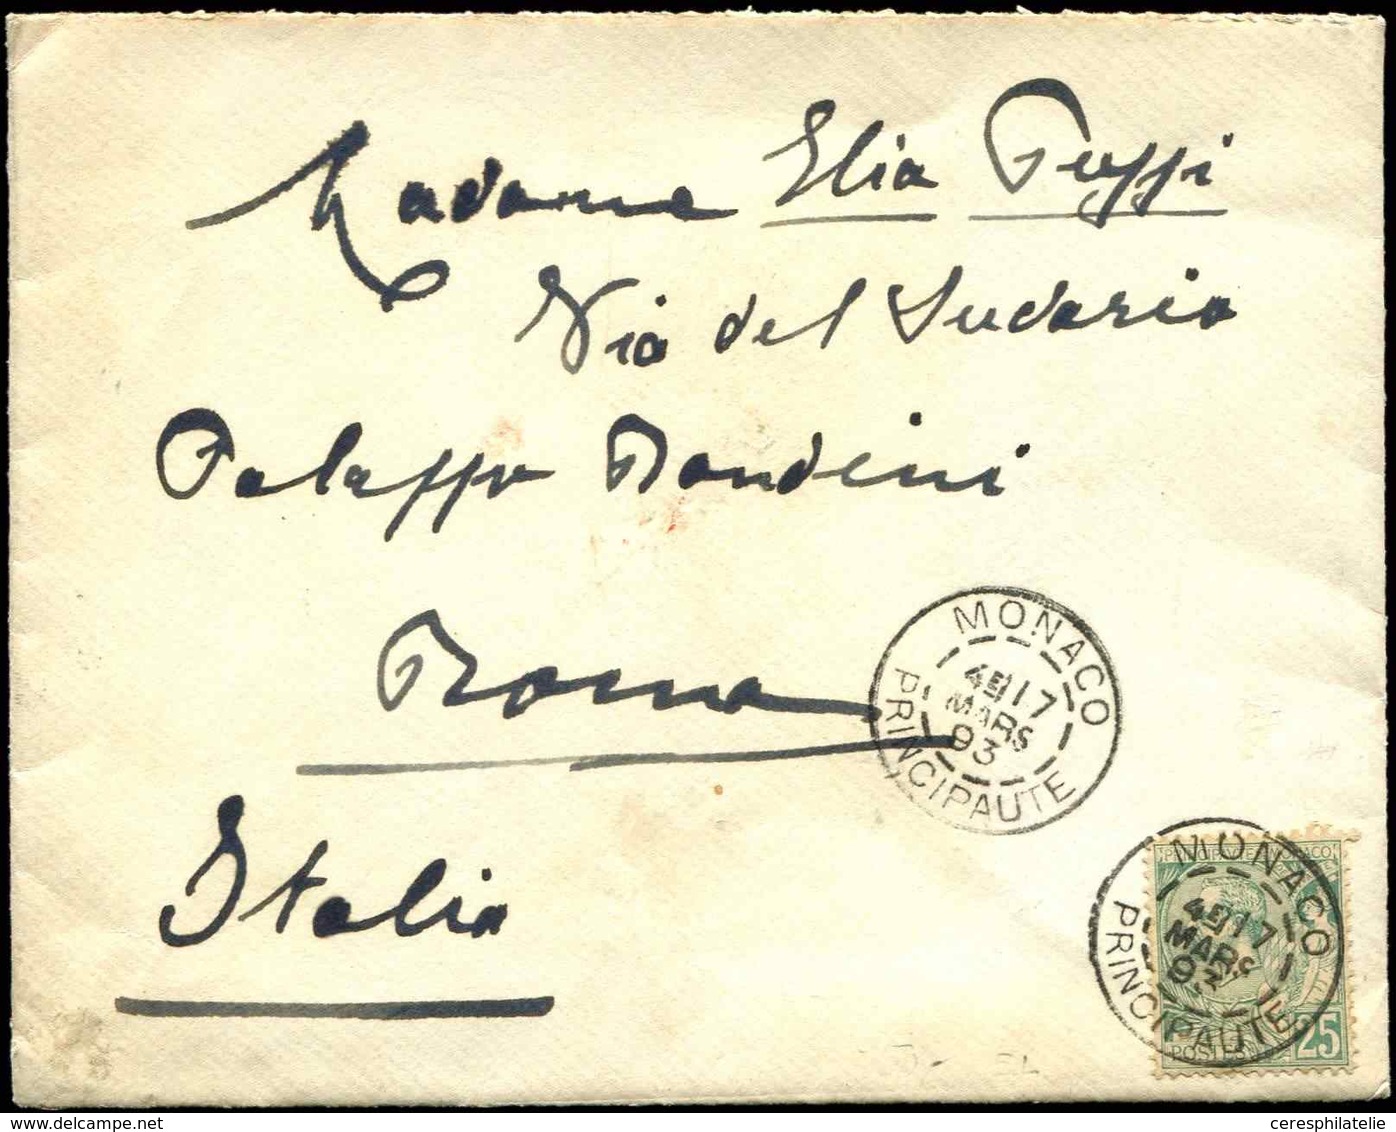 Madame Elia Puzzi
Via del Sudario
Palazzo Bandini
Roma
Italia
MONACO
4E 17
MARS
93
PRINCIPAUTE
PRINCIPAUTE DE MONACO
MONACO
4E 17
MARS
93
PRINCIPAUTE
POSTES
25
ceresphilatelie